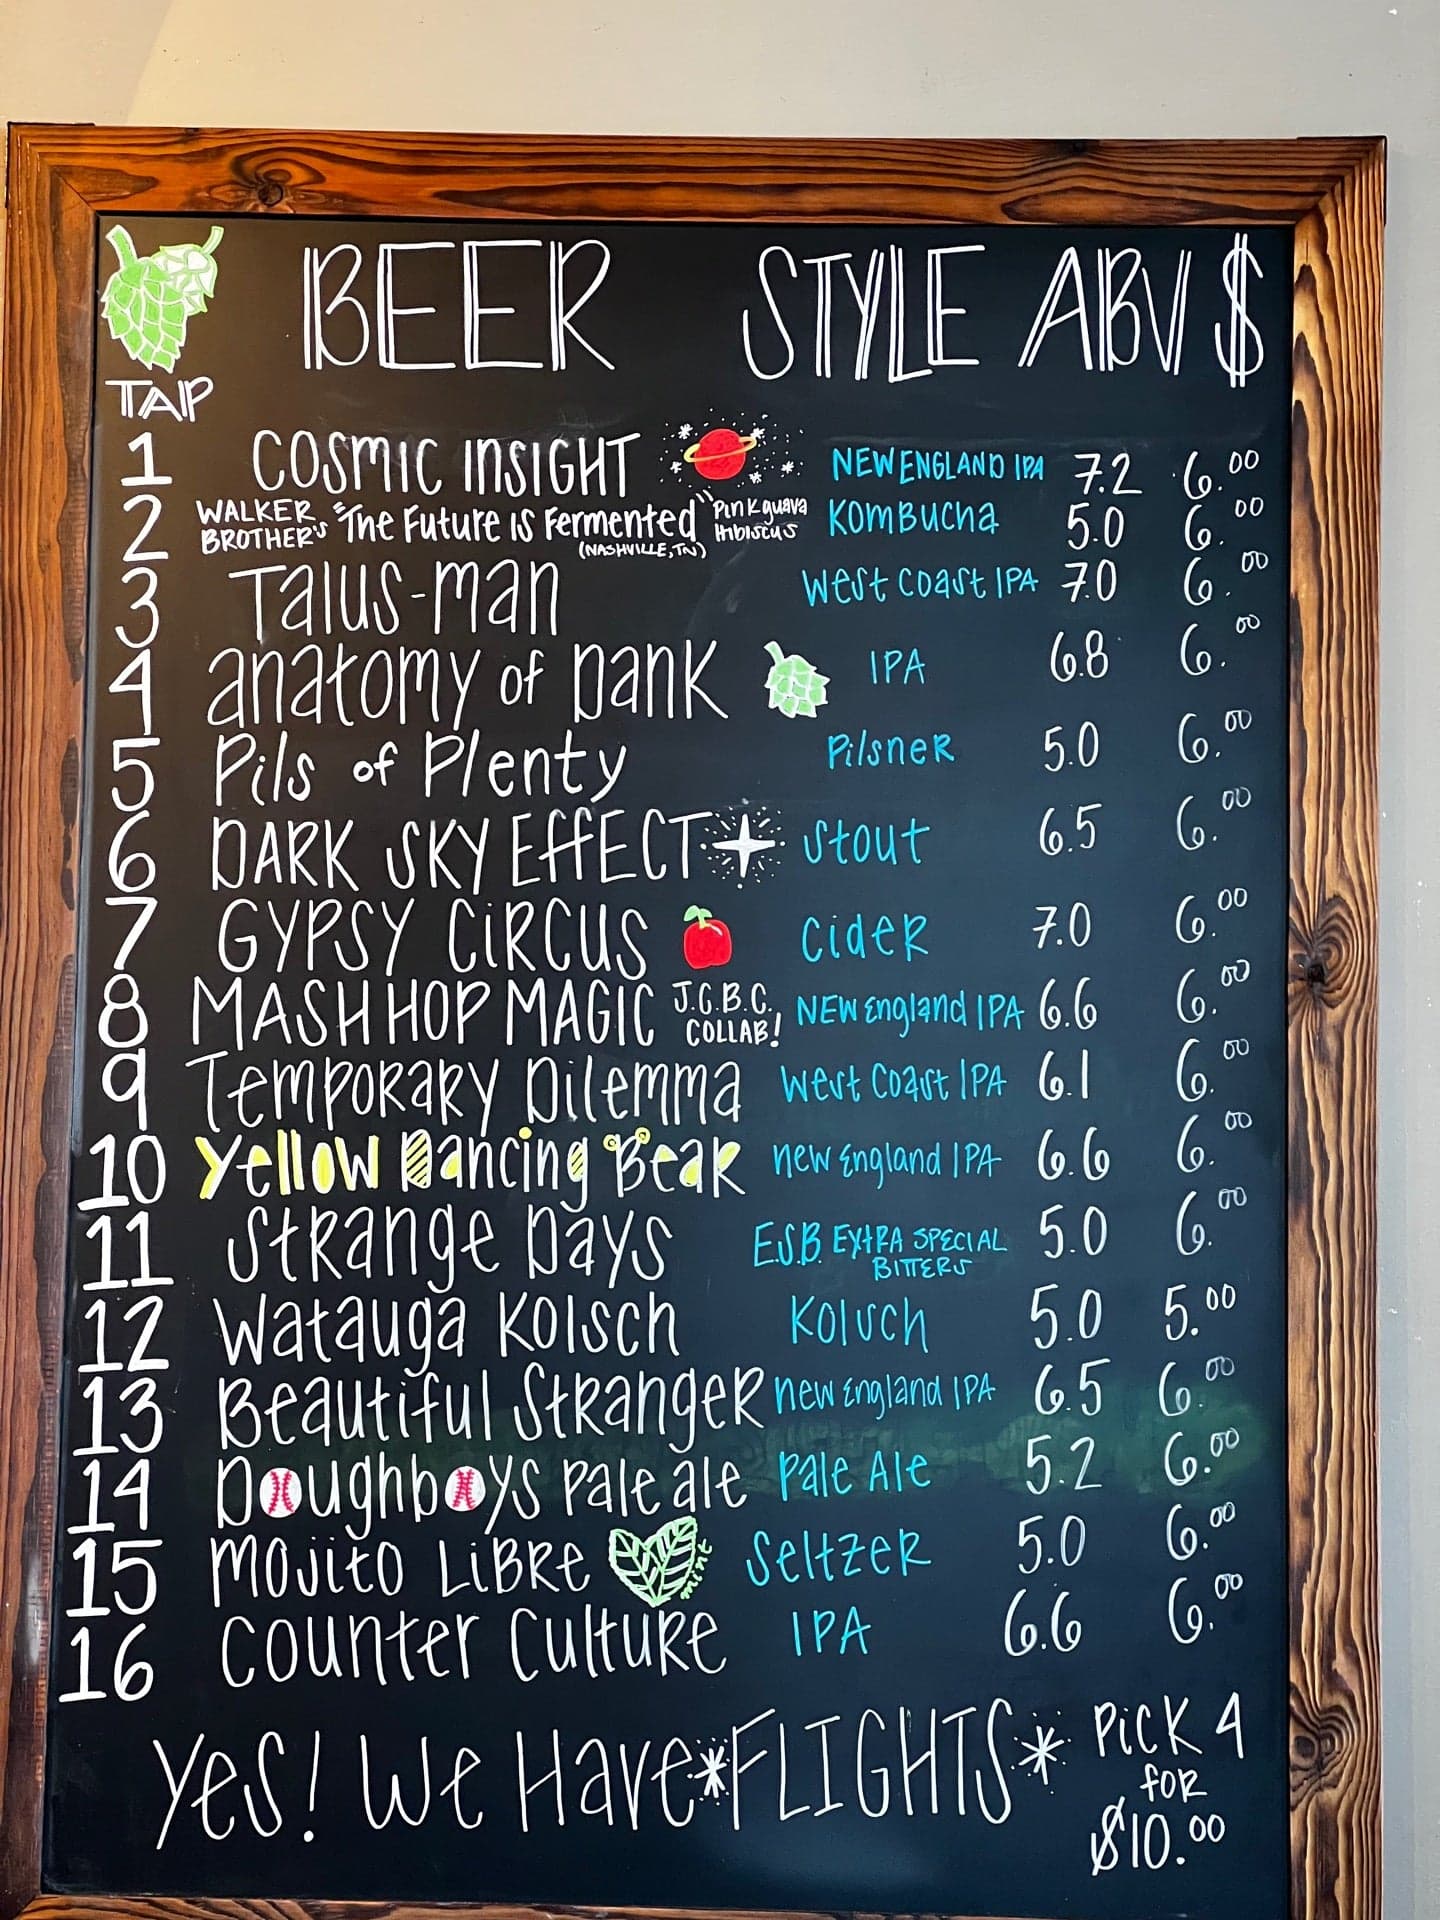 BEER STYLE ABV $
TAP
1 COSMIC INSIGHT NEW ENGLAND IPA 7.2 6.00
2 WALKER BROTHER'S "The Future is Fermented" (NASHVILLE, TN) Pink guava Hibiscus Kombucha 5.0 6.00
3 Talus-man West Coast IPA 7.0 6.00
4 anatomy of Dank IPA 6.8 6.00
5 Pils of Plenty Pilsner 5.0 6.00
6 DARK SKY EFFECT Stout 6.5 6.00
7 GYPSY CIRCUS Cider 7.0 6.00
8 MASH HOP MAGIC J.C.B.C. COLLAB! NEW England IPA 6.6 6.00
9 Temporary Dilemma West Coast IPA 6.1 6.00
10 Yellow Dancing Bear new England IPA 6.6 6.00
11 Strange Days E.S.B. EXTRA SPECIAL BITTERS 5.0 6.00
12 Watauga Kolsch Kolsch 5.0 5.00
13 Beautiful Stranger new England IPA 6.5 6.00
14 Doughboys Pale ale Pale Ale 5.2 6.00
15 Mojito Libre mint Seltzer 5.0 6.00
16 Counter Culture IPA 6.6 6.00
Yes! We Have *FLIGHTS* PiCK 4
for
$10.00